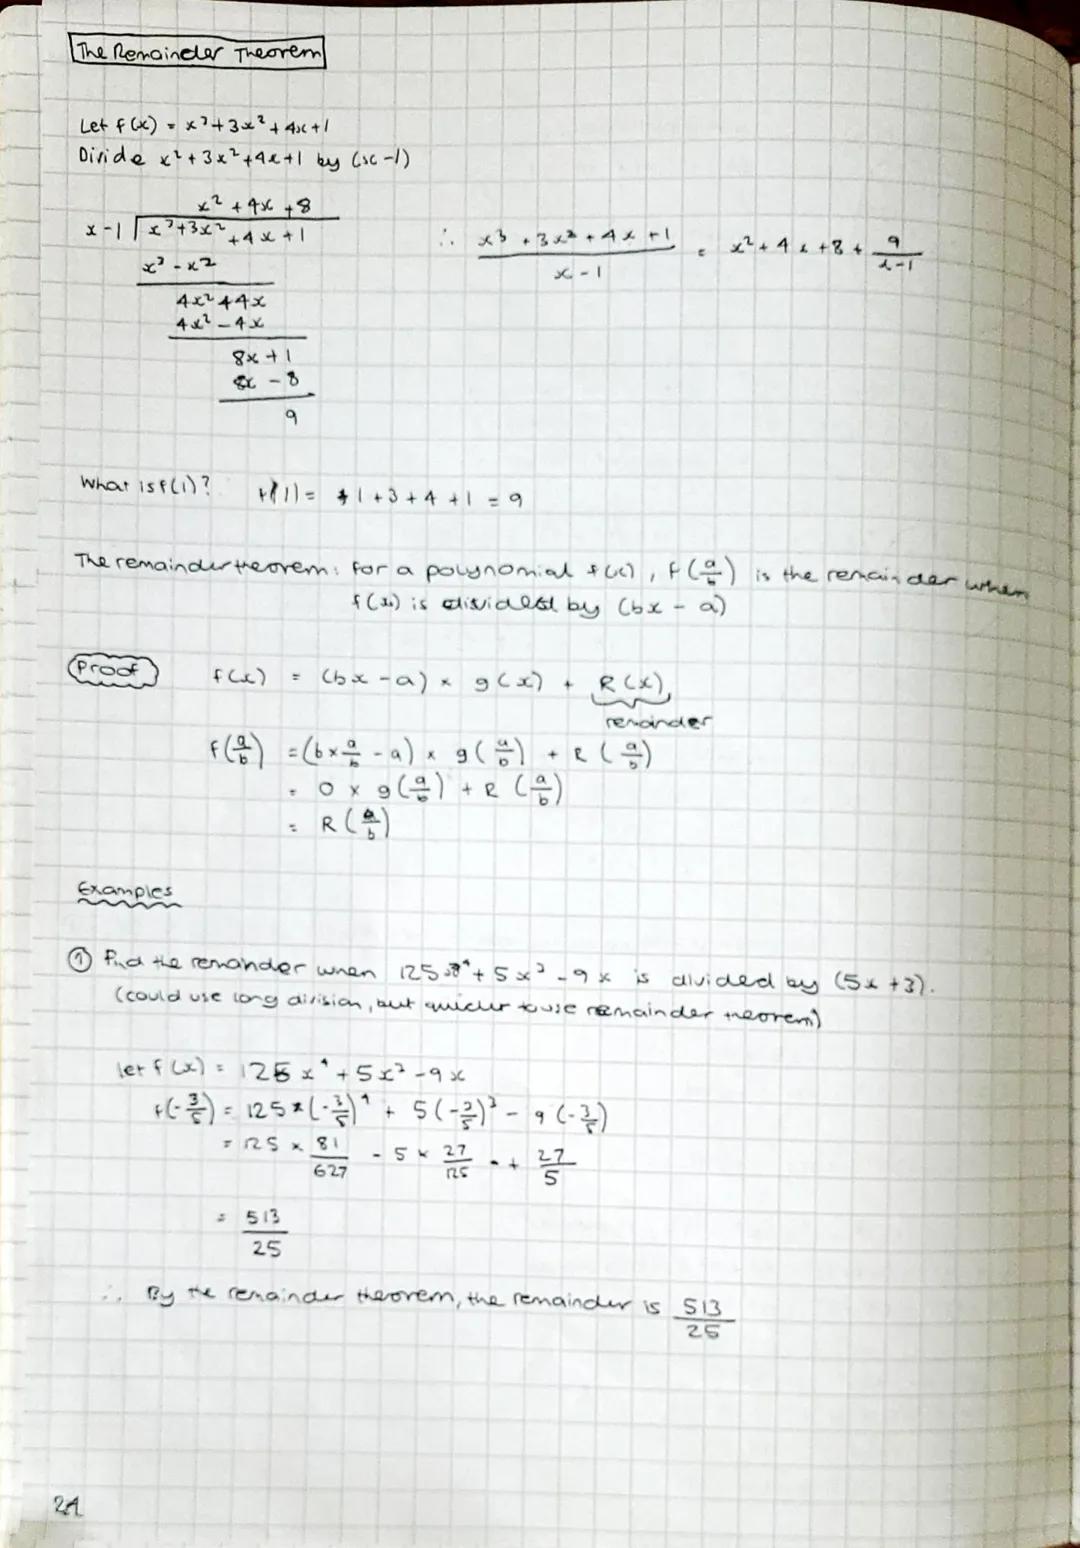 The Remainder Theorem
Let f(x) = x³+3x²+4x+1
Divide x²+3x²+4x+1 by (x-1)
x² + 4x + 8
x-1 | x³+3x²+4x+1
x³ - x²
4x² + 4x
4x² - 4x
8x + 1
8x - 8
9
∴ (x³ + 3x² + 4x + 1)/(x - 1) = x² + 4x + 8 + 9/(x-1)
What is f(1)? f(1) = 1+3+4+1 = 9
The remainder theorem: for a polynomial f(x), f(a/b) is the remainder when
f(x) is divided by (bx - a)
Proof
f(x) = (bx - a) × g(x) + R(x)
remainder
f(a/b) = (b×a/b - a) × g(a/b) + R(a/b)
= 0 × g(a/b) + R(a/b)
= R(a/b)
Examples
① Find the remainder when 125x⁴ + 5x³ - 9x is divided by (5x+3).
(could use long division, but quicker to use remainder theorem)
let f(x) = 125x⁴ + 5x³ - 9x
f(-3/5) = 125×(-3/5)⁴ + 5(-3/5)³ - 9(-3/5)
= 125 × 81/627 - 5 × 27/125 + 27/5
= 513/25
∴ By the remainder theorem, the remainder is 513/25